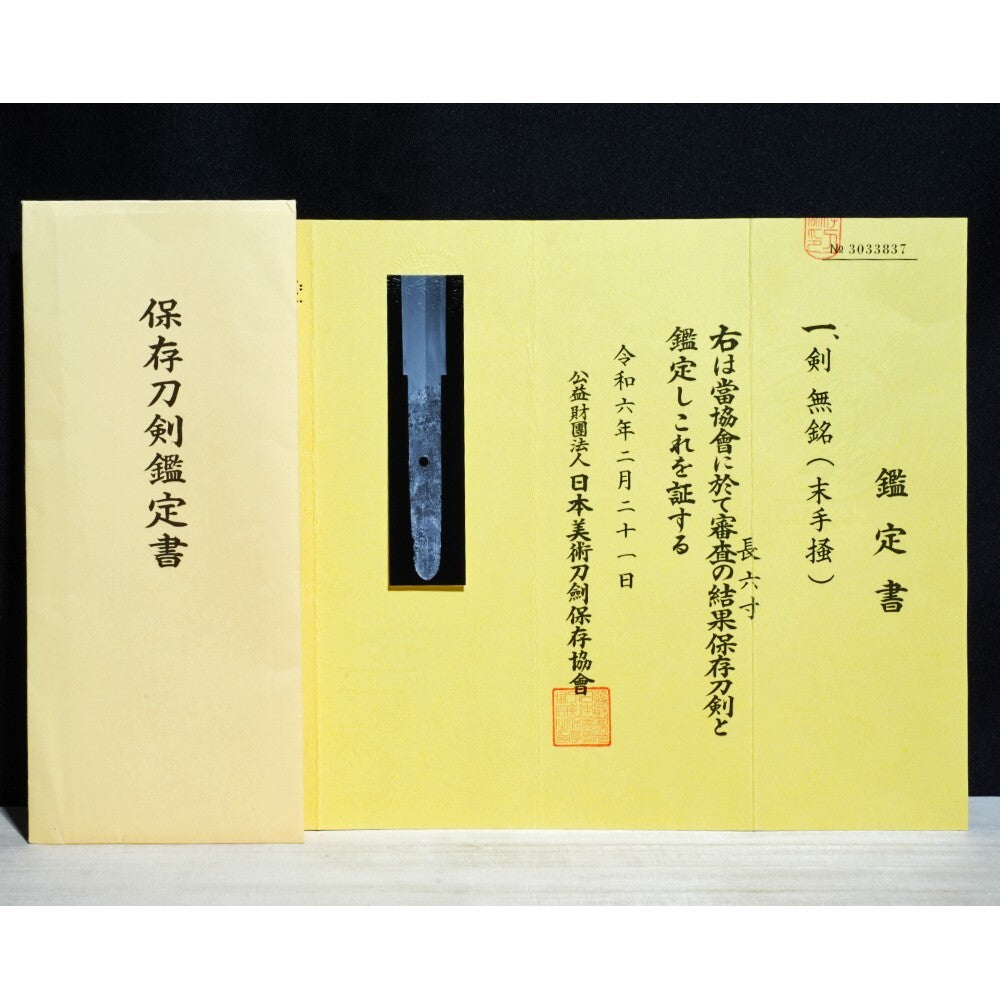 保存刀剣鑑定書
№ 3033837
鑑定書
一、剣 無銘(末手掻)
長 六寸
右は當協會に於て審査の結果保存刀剣と
鑑定しこれを証する
令和六年二月二十一日
公益財團法人日本美術刀劍保存協會